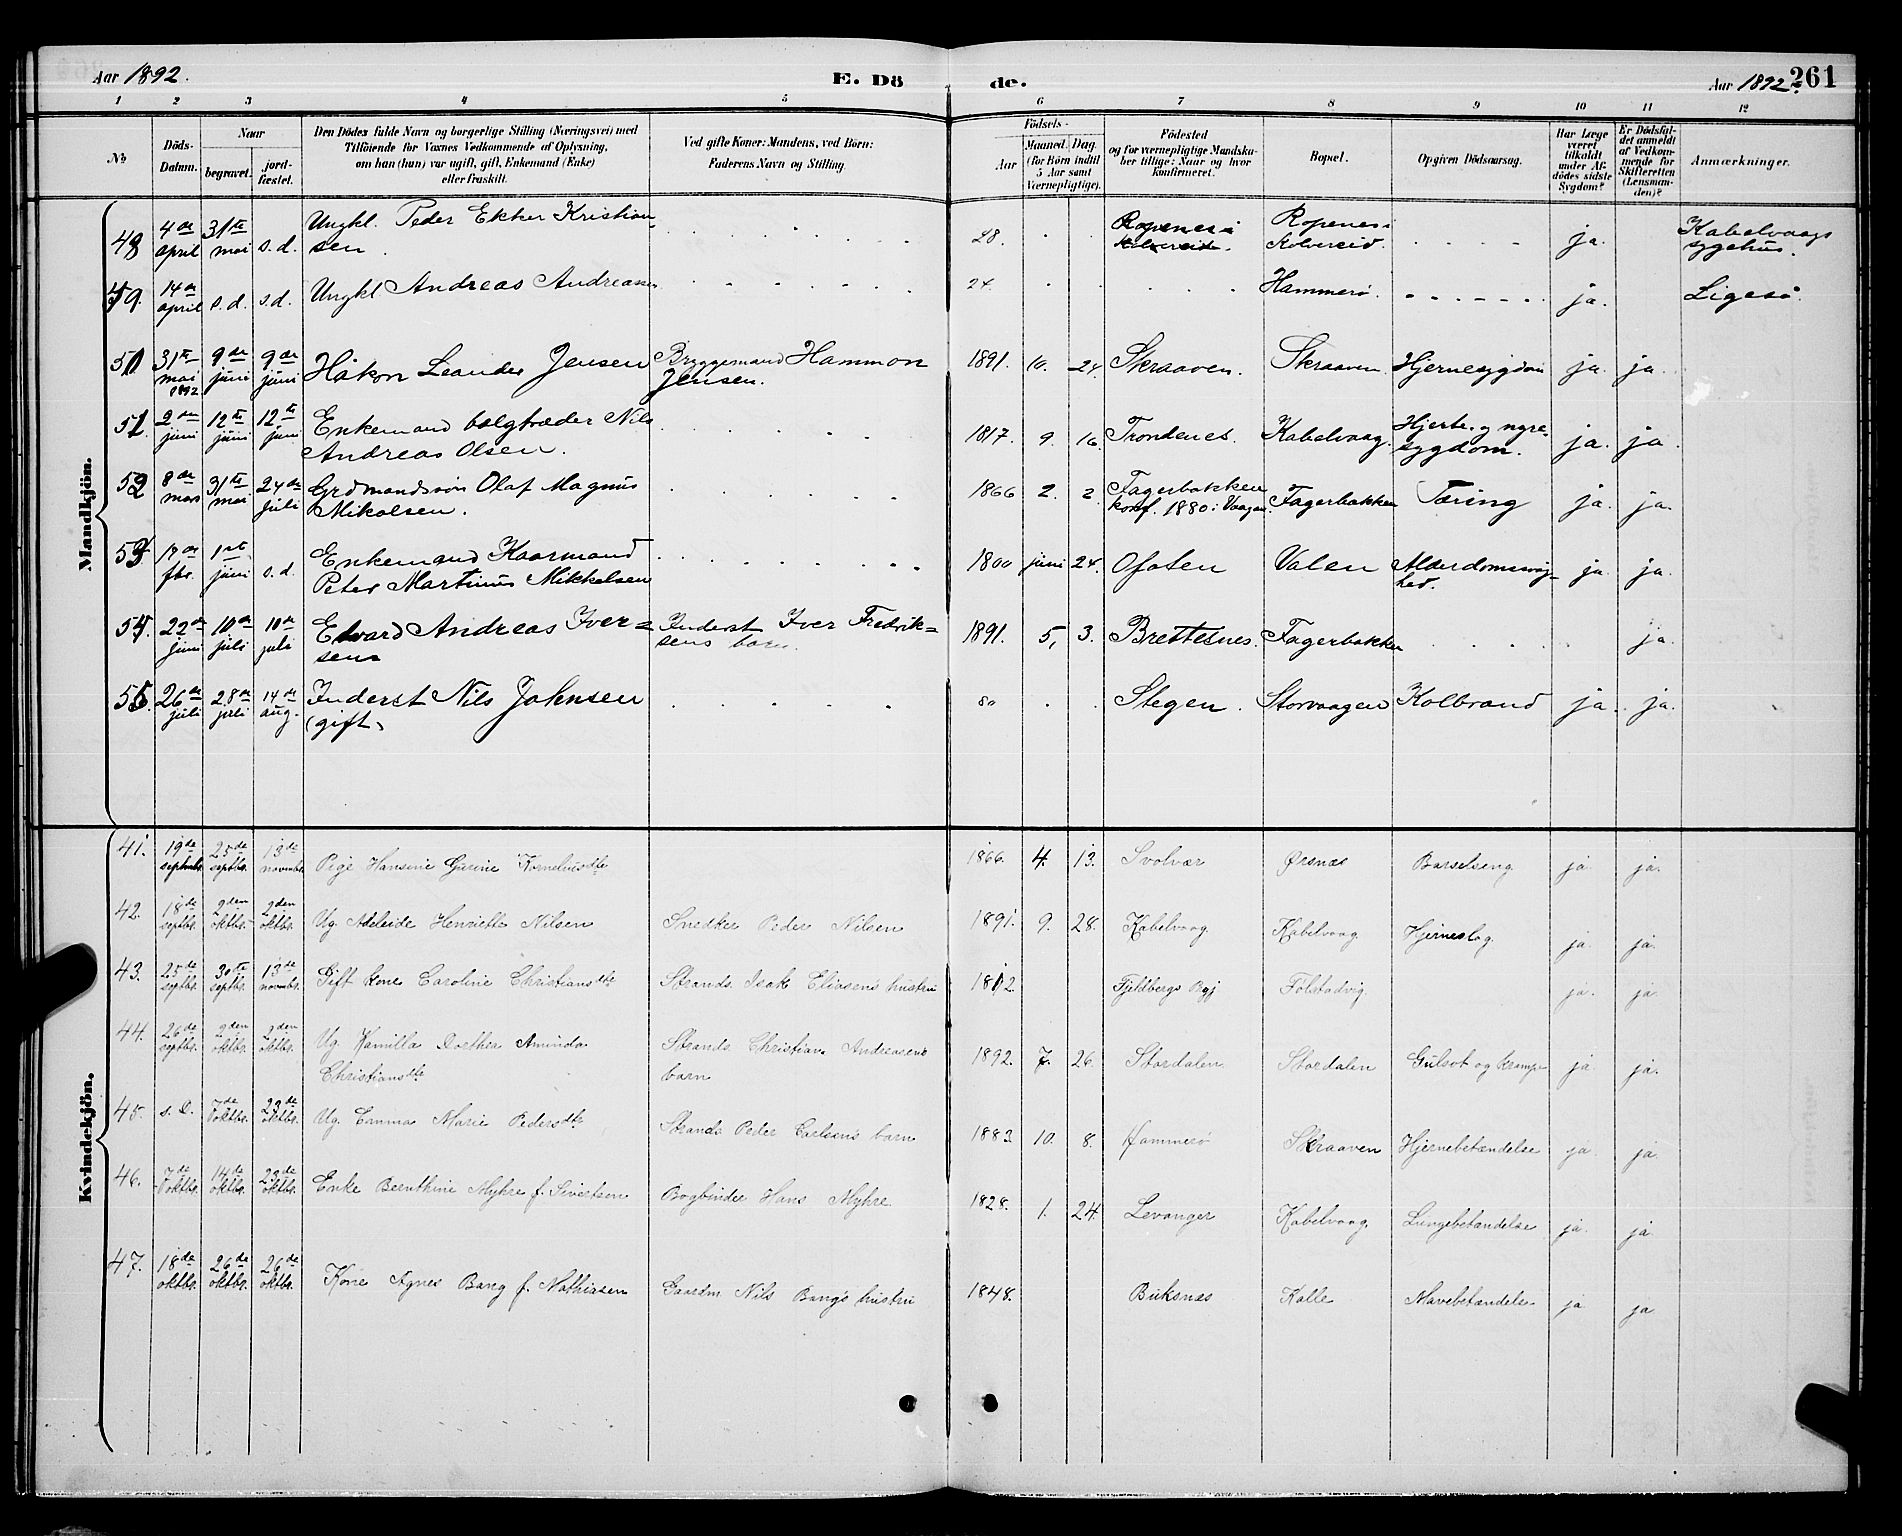 Aar 1892.
E. Dö
de.
Aar 1892. 261
1 2 3 4 5 6 7 8 9 10 11 12
No
Döds-Datum.
Naar
begravet.
jord-fæstet.
Den Dödes fulde Navn og borgerlige Stilling (Næringsvei) med
Tilföiende for Voxnes Vedkommende af Oplysning,
om han (hun) var ugift, gift, Enkemand (Enke)
eller fraskilt.
Ved gifte Koner: Mandens, ved Börn:
Faderens Navn og Stilling.
Födsels-
Aar
Maaned. Dag.
(for Börn indtil
5 Aar samt
Værnepligtige).
Födested
og for værnepligtige Mandska-
ber tillige: Naar og hvor
konfirmeret.
Bopæl.
Opgiven Dödsaarsag.
Har Læge
været
tilkaldt
under Af-
dödes sidste
Sygdom?
Er Dödsfal-
det anmeldt
af Vedkom-
mende for
Skifteretten
(Lensman-
den)?
Anmærkninger.
Mandkjön.
48 4de april 31te mai s.d. Ungkl. Peder Ekker Kristian
sen. 28. Ropenes i Kolvereid. Ropenes i Kolvereid ja. Kabelvaags sygehus.
49. 14de april s.d. s.d. Ungkl. Andreas Andreasen 24. Hammerö. ja. Ligesö.
50 31te mai 1892 9de juni 9de juni Håkon Leander Jensen Bryggemand Hammon
Jensen. 1891. 10. 24. Skraaven. Skraaven Hjernesygdom ja. ja.
51. 2den juni 12te juni 12te juni Enkemand bælgtræder Nils
Andreas Olsen. 1817. 9. 16 Trondenes. Kabelvaag. Hjerte- og nyre-
sygdom. ja. ja
52 8de mars 31te mai 24de juli Grdmandssön Olaf Magnus
Mikalsen. 1866 2. 2 Fagerbakken
konf. 1880 i Vaagan. Fagerbakken Tæring ja. ja.
53 17de fbr. 1ste juni s.d. Enkemand Kaarmand
Peter Martinus Mikkelsen 1800 juni 24. Ofoten Valen Alderdomssvag-
hed. ja. ja.
54. 22de juni 10de juli 10de juli Edvard Andreas Iver=
sen Inderst Iver Fredrik=
sens barn. 1891. 5, 3. Brettesnes. Fagerbakken ja.
55. 26de juli 28de juli 14de aug. Inderst Nils Johnsen
(gift) 80 Stegen. Storvaagen Kolbrand ja. ja.
Kvindekjön.
41. 19de septmbr. 25de septbr. 13de novembr. Pige Hansine Gurine Korneliusdtr 1866. 4. 13. Svolvær Ørsnæs Barselseng ja. ja.
42. 18de septbr. 2den oktbr. 2den oktbr. Ug. Adeleide Henriette Nilsen Snedker Peder Nilsen 1891. 9. 28. Kabelvaag Kabelvaag Hjerneslag. ja. ja.
43. 25de septbr. 30te septbr. 13de novmbr. Gift Kone Caroline Christiansdtr Strands. Isak Eliasens hustru 1812. Fjeldbergs Bygj Fölstadvig. ja. ja.
44. 26de septbr. 2den oktbr. 2den oktbr. Ug. Kamilla Dorthea Aminda
Christiansdtr Strands. Christian Andreasens
barn 1892. 7. 26. Stordalen Stordalen Gulsot og Krampe ja. ja.
45. s.D. 7de oktbr. 23de oktbr. Ug. Emma Marie Pedersdtr Strands. Peder Carlsens barn 1883 10. 8. Hammerö Skraaven Hjernebetændelse ja. ja.
46. 7de oktbr. 14de oktbr. 23de oktbr. Enke Bernthine Myhre f. Sivertsen Bogbinder Hans Myhre. 1828. 1. 24. Levanger Kabelvaag Lungebetændelse ja. ja.
47. 18de oktbr. 26de oktbr. 26de oktbr. Kone Agnes Bang f. Mathiasen Gaardm. Nils Bang's hustru 1848. Buksnæs Kalle Mavebetændelse ja ja